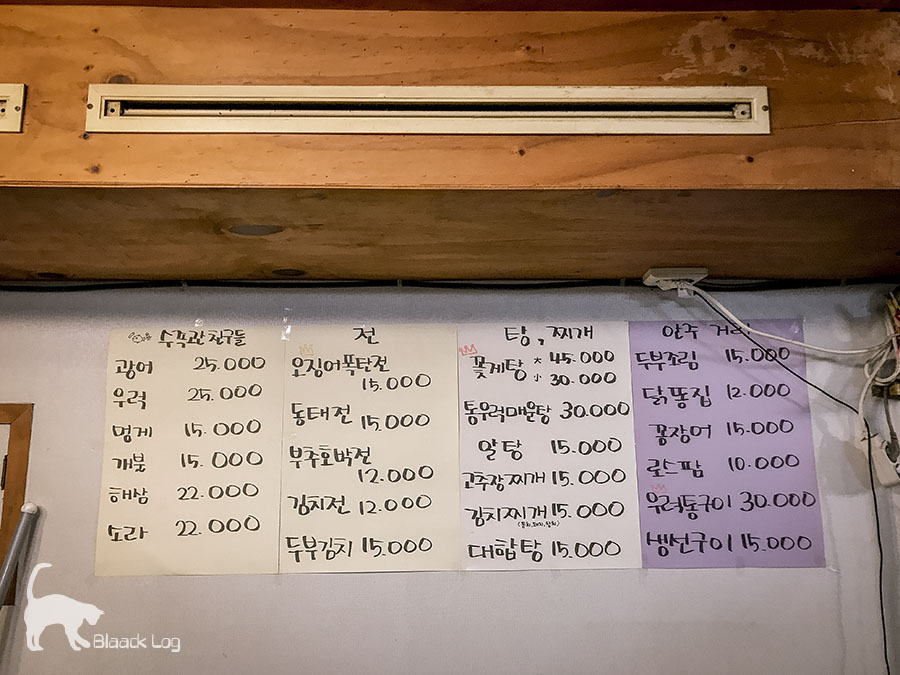 수족관 친구들
광어 25.000
우럭 25.000
멍게 15.000
개불 15.000
해삼 22.000
소라 22.000
전
오징어폭탄전
15.000
동태전 15.000
부추호박전
12.000
김치전 12.000
두부김치 15.000
탕, 찌개
꽃게탕 大 45.000
小 30.000
통우럭매운탕 30.000
알탕 15.000
고추장찌개 15.000
김치찌개 15.000
대합탕 15.000
안주 거리
두부조림 15.000
닭똥집 12.000
꼼장어 15.000
로스팜 10.000
우럭통구이 30.000
생선구이 15.000
Blaack Log